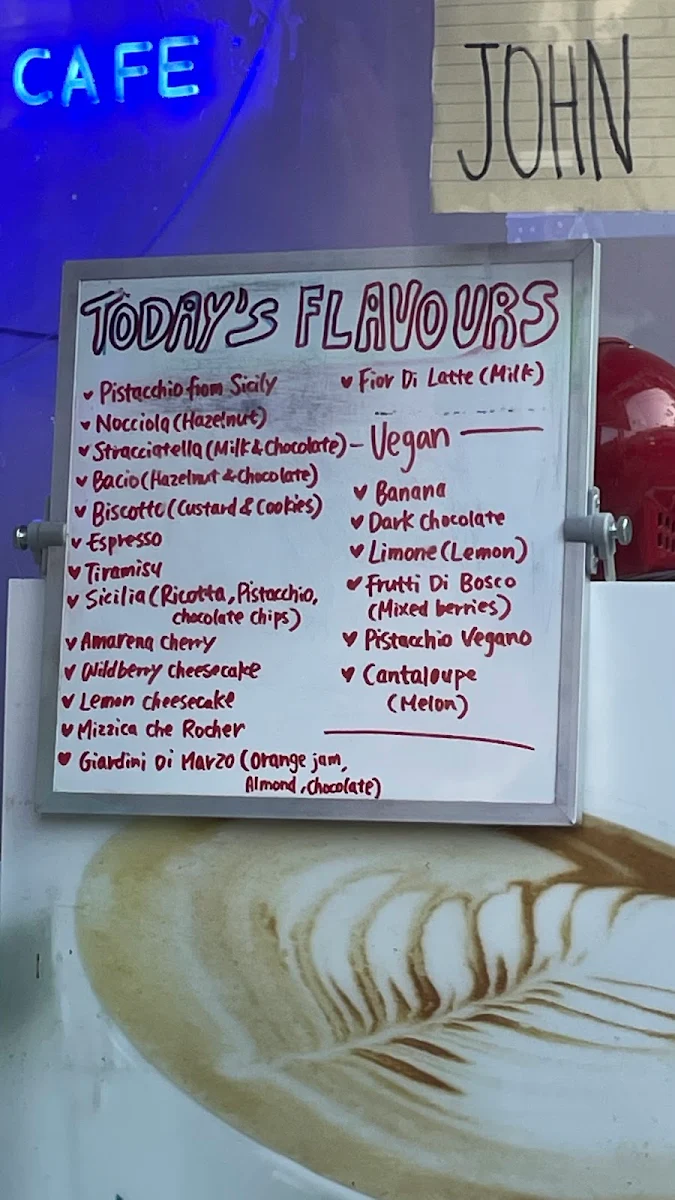 CAFE
JOHN
TODAY'S FLAVOURS
♥ Pistacchio from Sicily
♥ Nocciola (Hazelnut)
♥ Stracciatella (Milk & Chocolate)
♥ Bacio (Hazelnut & Chocolate)
♥ Biscotto (Custard & Cookies)
♥ Espresso
♥ Tiramisu
♥ Sicilia (Ricotta, Pistacchio,
chocolate chips)
♥ Amarena cherry
♥ Wildberry cheesecake
♥ Lemon cheesecake
♥ Mizzica che Rocher
♥ Giardini Di Marzo (Orange jam,
Almond, chocolate)
♥ Fior Di Latte (Milk)
– Vegan —
♥ Banana
♥ Dark chocolate
♥ Limone (Lemon)
♥ Frutti Di Bosco
(Mixed berries)
♥ Pistacchio Vegano
♥ Cantaloupe
(Melon)